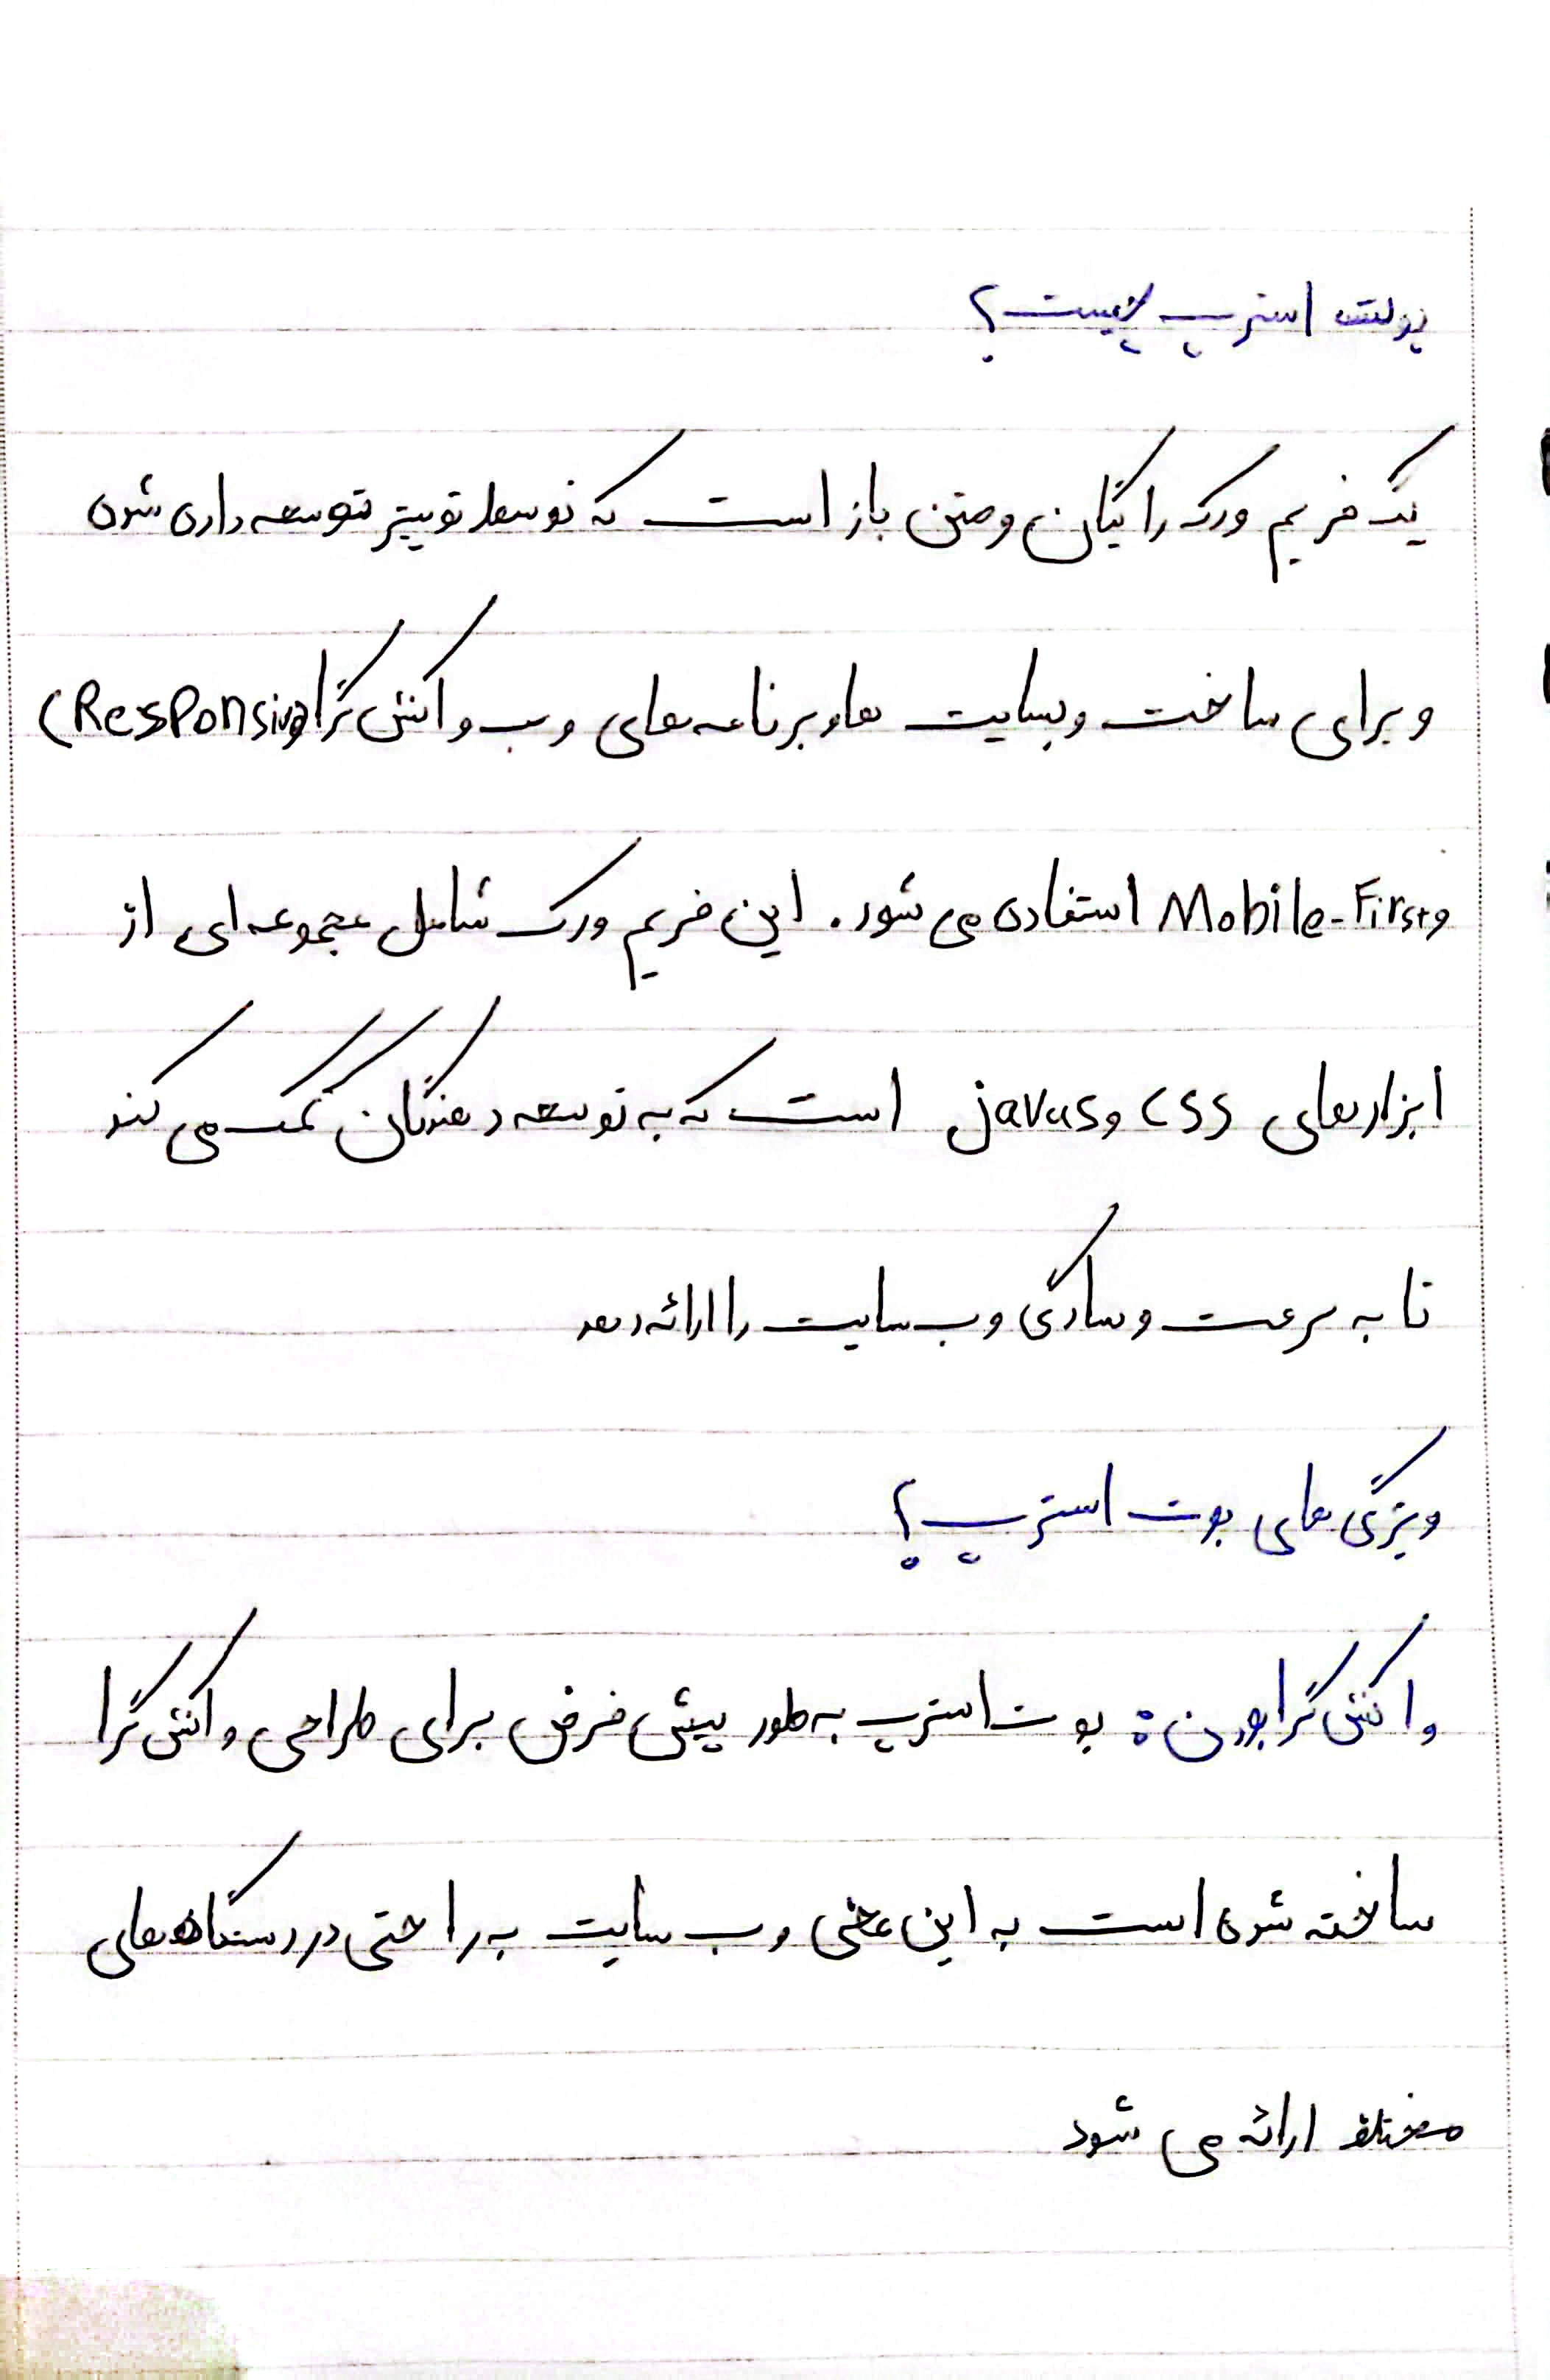 بوت استرپ چیست؟
یک فریم ورک رایگان و متن باز است که توسط توییتر توسعه داده شده
و برای ساخت وبسایت ها و برنامه های وب واکنش گرا (Responsive)
و Mobile-First استفاده می شود. این فریم ورک شامل مجموعه ای از
ابزارهای css و javas است که به توسعه دهندگان کمک می کند
تا به سرعت و سادگی وب سایت را ارائه دهد
ویژگی های بوت استرپ؟
واکنش گرا بودن: بوت استرپ به طور پیش فرض برای طراحی واکنش گرا
ساخته شده است به این معنی وب سایت به راحتی در دستگاه های
مختلف ارائه می شود